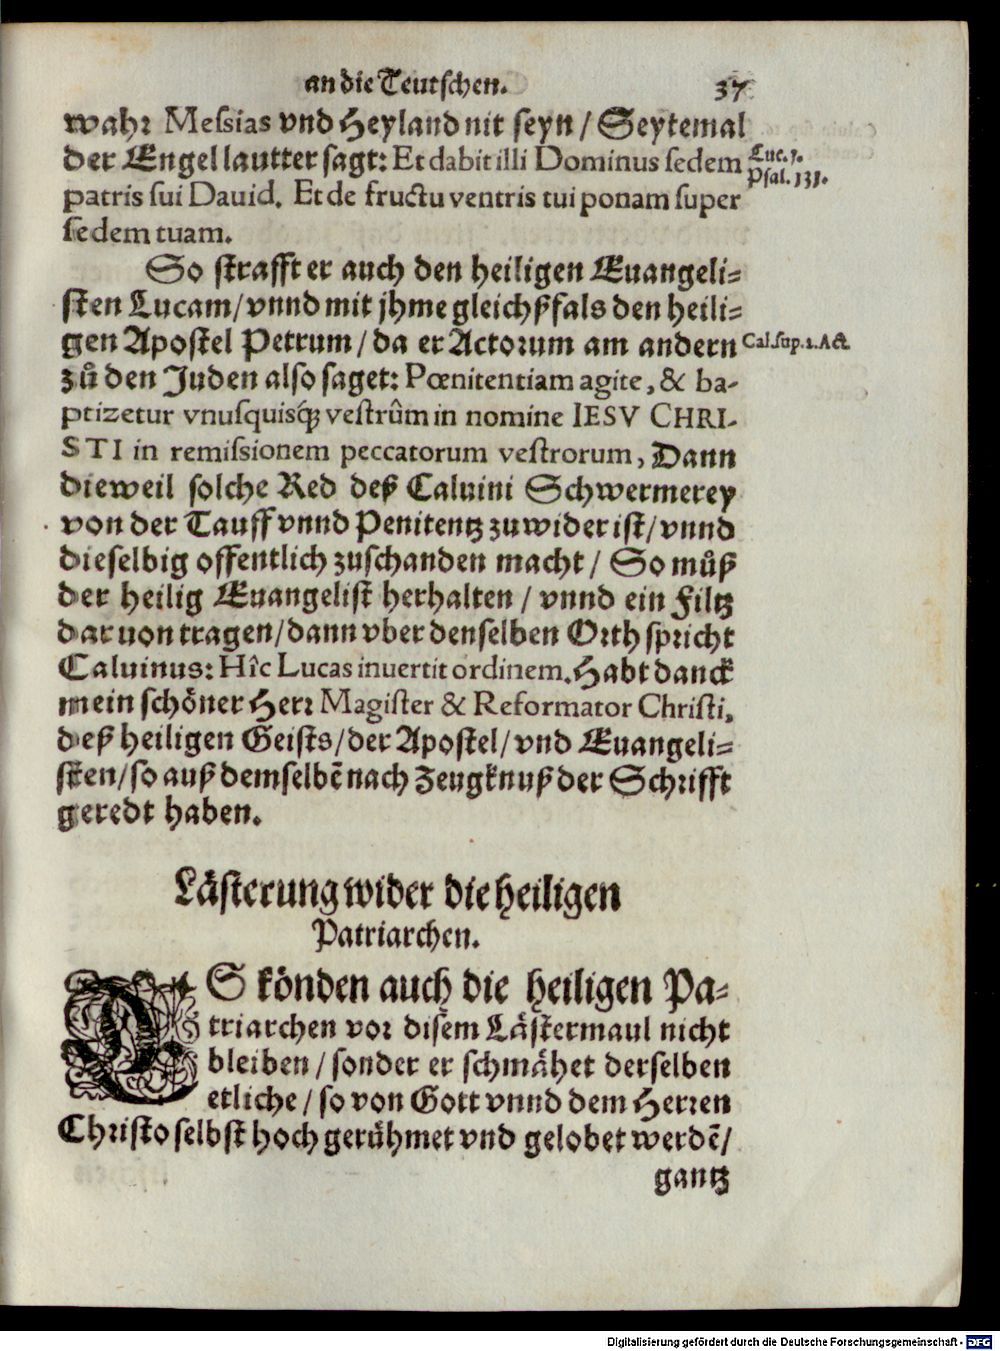 an die Teutschen. 37
wahr Messias vnd Heyland nit seyn / Seytemal
der Engel lautter sagt: Et dabit illi Dominus sedem
Luc. 1.
Psal. 131.
patris sui Dauid. Et de fructu ventris tui ponam super
sedem tuam.
So strafft er auch den heiligen Euangeli=
sten Lucam / vnnd mit jhme gleichßfals den heili=
gen Apostel Petrum / da er Actorum am andern
Cal. sup. 2. Act.
zů den Juden also saget: Pœnitentiam agite, & ba-
ptizetur vnusquisq́; vestrûm in nomine IESV CHRI-
STI in remissionem peccatorum vestrorum, Dann
dieweil solche Red deß Caluini Schwermerey
von der Tauff vnnd Penitentz zuwider ist / vnnd
dieselbig offentlich zuschanden macht / So můß
der heilig Euangelist herhalten / vnnd ein Filtz
daruon tragen / dann vber denselben Orth spricht
Caluinus: Hîc Lucas inuertit ordinem. Habt danck
mein schöner Herr Magister & Reformator Christi,
deß heiligen Geists / der Apostel / vnd Euangeli=
sten / so auß demselbē nach Zeugknuß der Schrifft
geredt haben.
Lästerung wider die heiligen
Patriarchen.
ES könden auch die heiligen Pa=
triarchen vor disem Lästermaul nicht
bleiben / sonder er schmähet derselben
etliche / so von Gott vnnd dem Herren
Christo selbst hoch gerühmet vnd gelobet werdē /
gantz
Digitalisierung gefördert durch die Deutsche Forschungsgemeinschaft - DFG